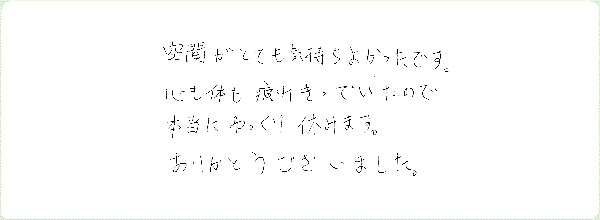 空間がとても気持ちよかったです。
心も体も疲れきっていたので
本当にゆっくり休めます。
ありがとうございました。